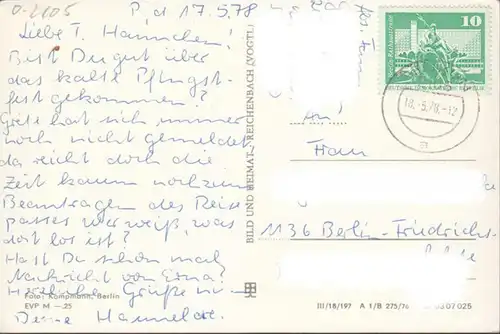 0-2105
P, d 17.5.78
Liebe T. Hannchen!
Bist Du gut über
das kalte Pfingst-
fest gekommen?
Grete hat sich immer
noch nicht gemeldet,
da reicht doch die
Zeit kaum noch zum
Beantragen des Reise
passes. Wer weiß, was
dort los ist?
Hast Du schon mal
Nachricht von Erna?
Herzliche Grüße
Deine Hannelore.
Foto: Kampmann, Berlin
EVP M —.25
BILD UND HEIMAT REICHENBACH (VOGTL)
10
DEUTSCHE DEMOKRATISCHE REPUBLIK
18.-5.78.-12
a
An
Frau
1136 Berlin-Friedrichs-
III/18/197 A 1/B 275/76 07 025